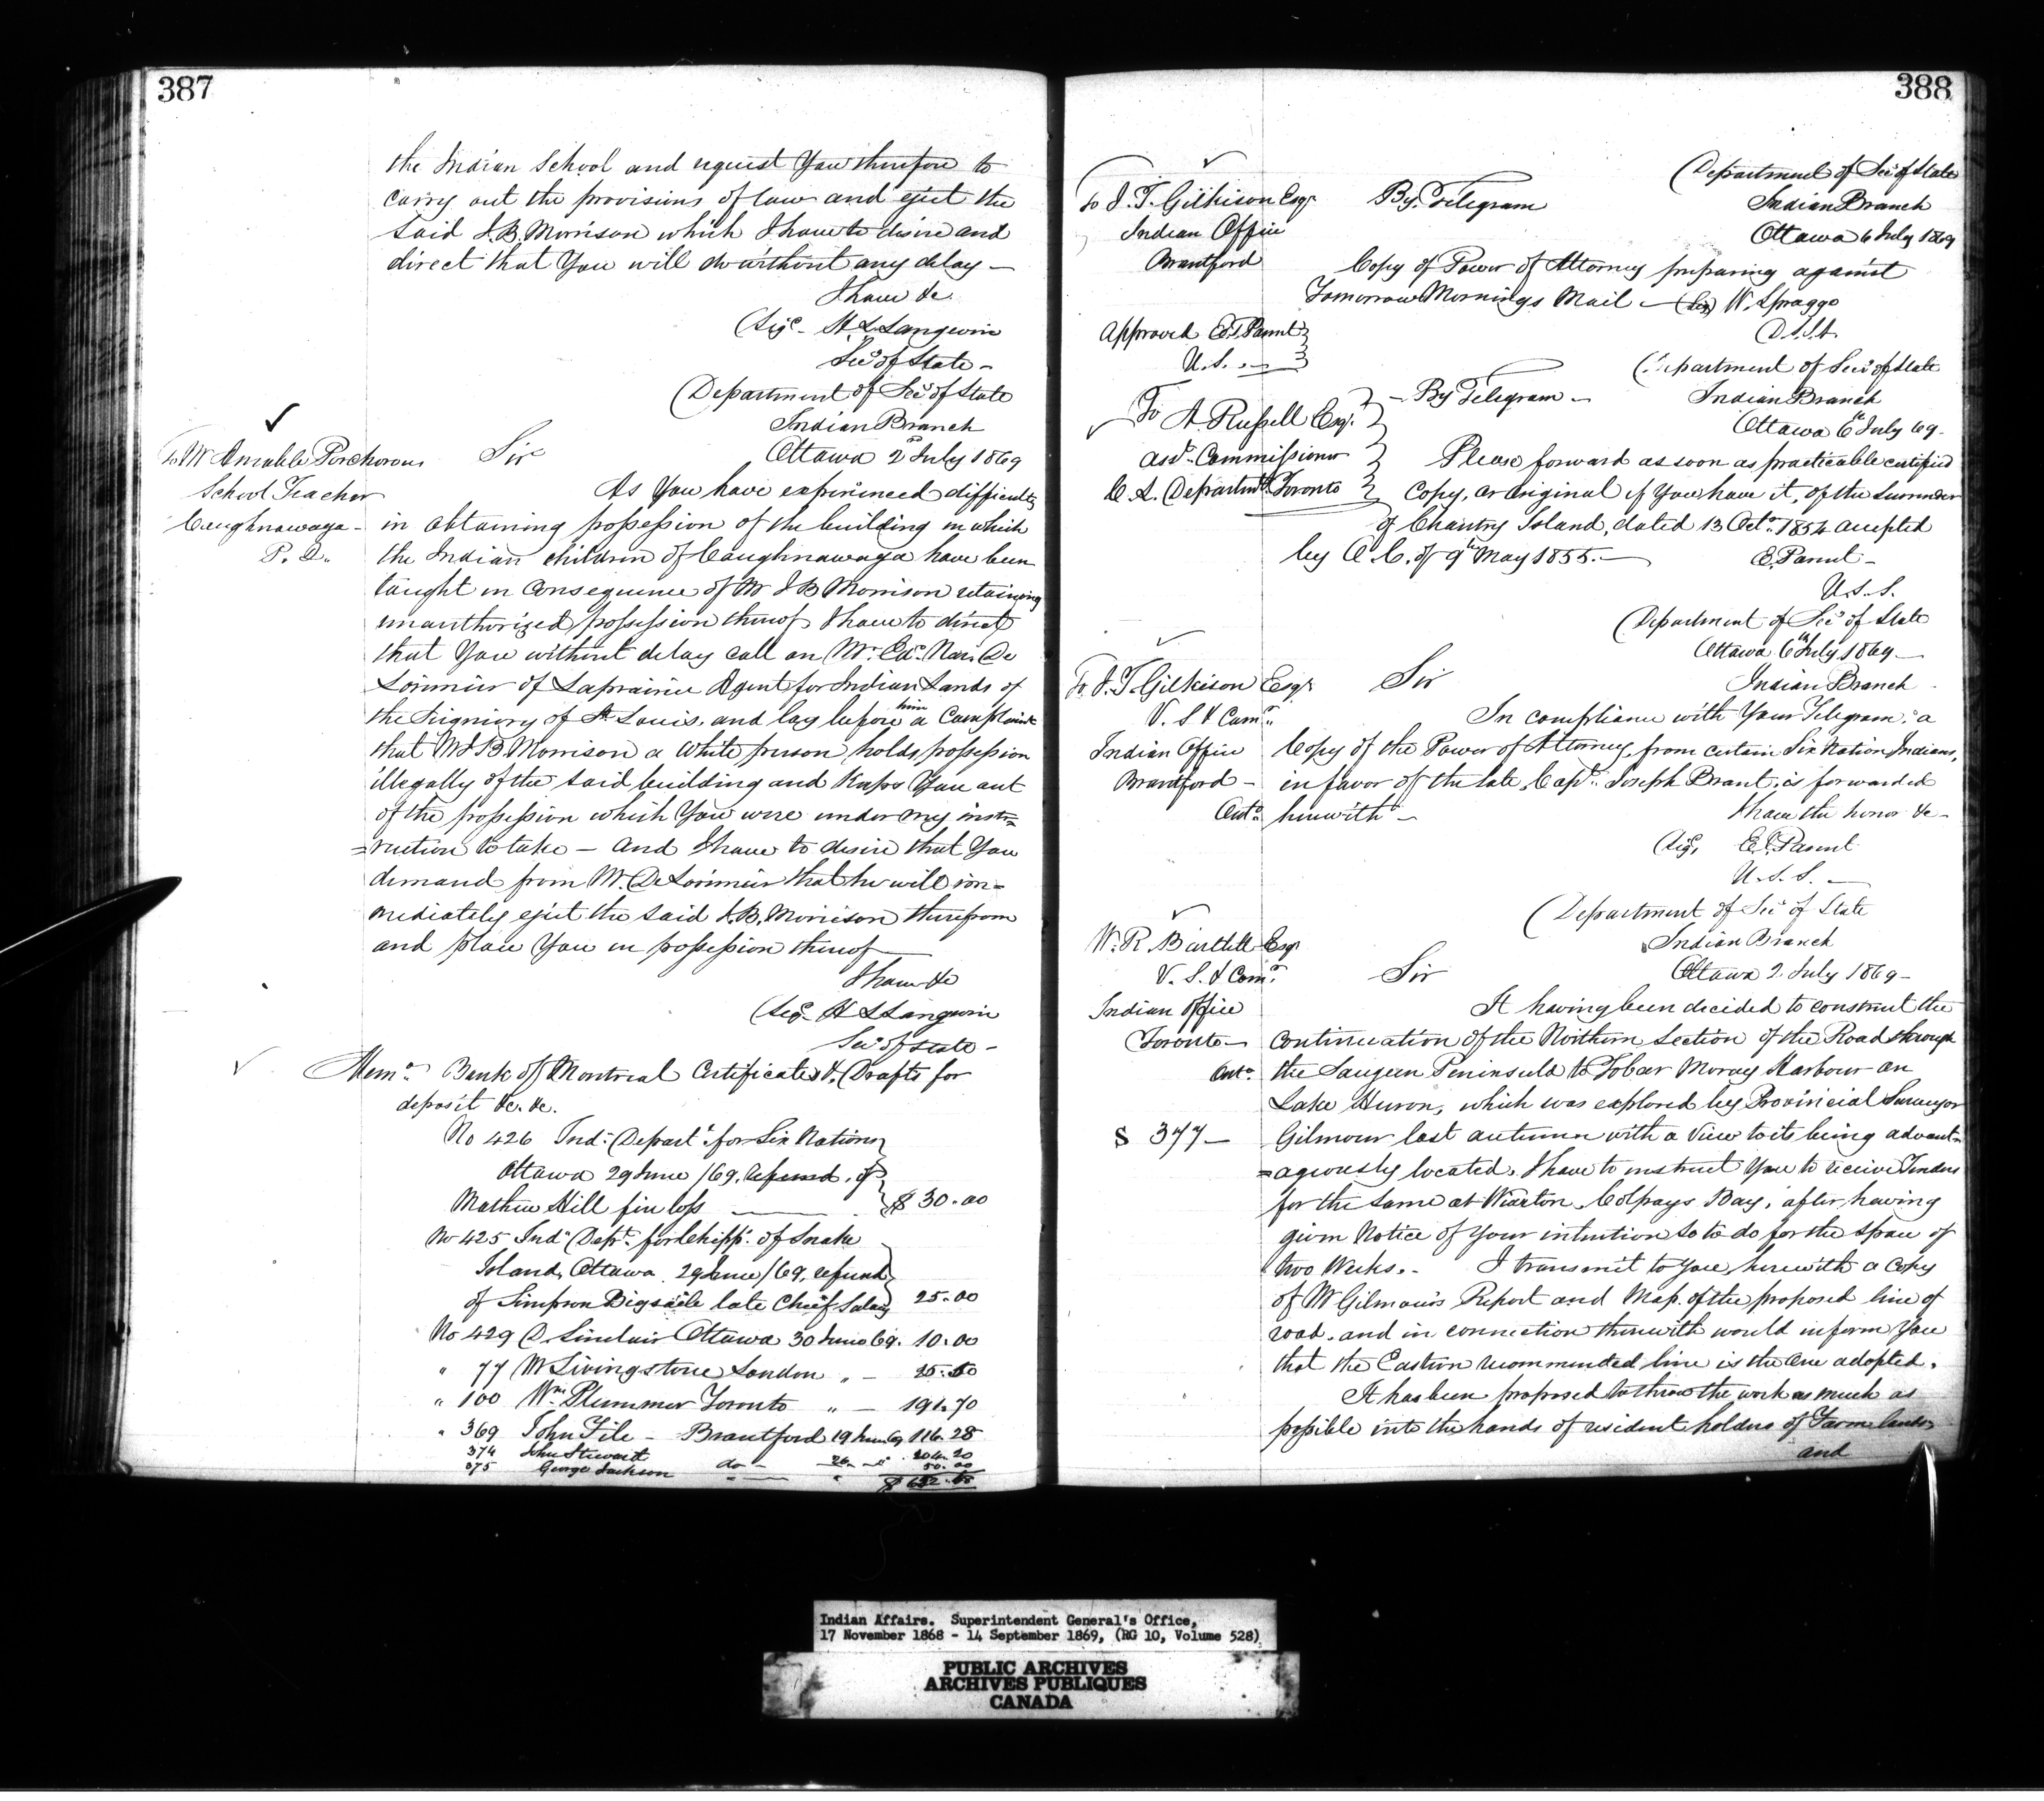 387
the Indian School and request You therefore to
carry out the provisions of law and eject the
said J. B. Morrison which I have to desire and
direct that You will do without any delay —
I have &c
(Sigd. H. L. Langevin
Secy of State –
(Department of Secy of State
Indian Branch
Ottawa 2d July 1869
To Mr Amable
School Teacher
Caughnawaga –
P. Q.
Sir
As You have experienced difficulty
in obtaining possession of the building in which
the Indian children of Caughnawaga have been
taught in consequence of Mr J B Morrison retaining
unauthorized possession thereof I have to direct
that You without delay call on Mr. Edd. Nar. De
Lorimier of Laprairie Agent for Indian Lands of
the Seigniory of St Louis, and lay before him a Complaint
that Mr J B Morrison a White person holds possession
illegally of the said building and Keeps You out
of the possession which You were under my inst=
=ruction to take – and I have to desire that You
demand from Mr. DeLorimier that he will im=
mediately eject the said J. B. Morrison therefrom
and place You in possession thereof
I have &c
(Sigd. H L Langevin
Secy of State –
Memo. Bank of Montreal Certificates & Drafts for
deposit &c. &c.
No 426 Ind: Depart. for Six Nations
Ottawa 29 June /69, refund, of
Mathew Hill fire loss $ 30.00
No 425 Ind. Dept. for Chipps. of Snake
Island, Ottawa 29 June /69, refund
of Simpson Bigsail late Chief Salary 25.00
No 429 D. Sinclair Ottawa 30 June 69. 10.00
" 77 M Livingstone London " —
" 100 Wm. Plummer Toronto " — 191.70
" 369 John File – Brantford 19 June 69 116.28
374 John Stewart do – 204.20
375 George Jackson " — " 50.00
388
To J. T. Gilkison Esqr
Indian Office
Brantford
By Telegram
(Department of Secy of State
Indian Branch
Ottawa 6 July 1869
Copy of Power of Attorney preparing against
Tomorrow Mornings Mail — (Sigd) W. Spragge
D.S.I.A.
Approved E. Parent
U.S.
(Department of Secy of State
To A. Russell Esqr.
Asst. Commissioner
C. L. Departmt. Toronto
– By Telegram –
Indian Branch
Ottawa 6th July 69.
Please forward as soon as practicable certified
Copy, or original if You have it, of the Surrender
of Chantry Island, dated 13 Octr. 1854 accepted
by O. C. of 9th May 1855. —
E. Parent –
U.S.S.
(Department of Secy of State
Ottawa 6th July 1869 —
Indian Branch
To J. T. Gilkison Esqr
V. S. & Comr.
Indian Office
Brantford –
Onto.
Sir
In compliance with Your Telegram, a
Copy of the Power of Attorney from certain Six Nation Indians,
in favor of the late Capt. Joseph Brant, is forwarded
herewith –
I have the honor &c –
(Sigd, E. Parent
U.S.S. —
(Department of Secy of State
Indian Branch
Ottawa 2. July 1869 –
W. R. Bartlett Esqr
V. S. & Comr.
Indian Office
Toronto –
Onto.
Sir
It having been decided to construct the
continuation of the Northern Section of the Road through
the Saugeen Peninsula to Tobermoray Harbour on
Lake Huron, which was explored by Provincial Surveyor
$ 377 — Gilmour last autumn with a View to its being advant=
=ageously located. I have to instruct You to receive Tenders
for the same at Wiarton, Colpoys Bay, after having
given Notice of Your intention so to do for the space of
two Weeks. – I transmit to You herewith a Copy
of Mr Gilmour's Report and Map of the proposed line of
road, and in connection therewith would inform You
that the Eastern recommended line is the One adopted.
It has been proposed to throw the work as much as
possible into the hands of resident holders of Farm lands,
and
Indian Affairs. Superintendent General's Office,
17 November 1868 - 14 September 1869, (RG 10, Volume 528)
PUBLIC ARCHIVES
ARCHIVES PUBLIQUES
CANADA